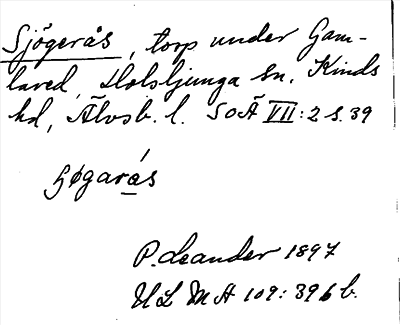 Sjögerås, torp under Gam-
lared, Holsljunga sn, Kinds
hd, Älvsb. l. SOÄ VII:2 s. 39
gøgarás
P. Leander 1897
ULMA 109:396 b.